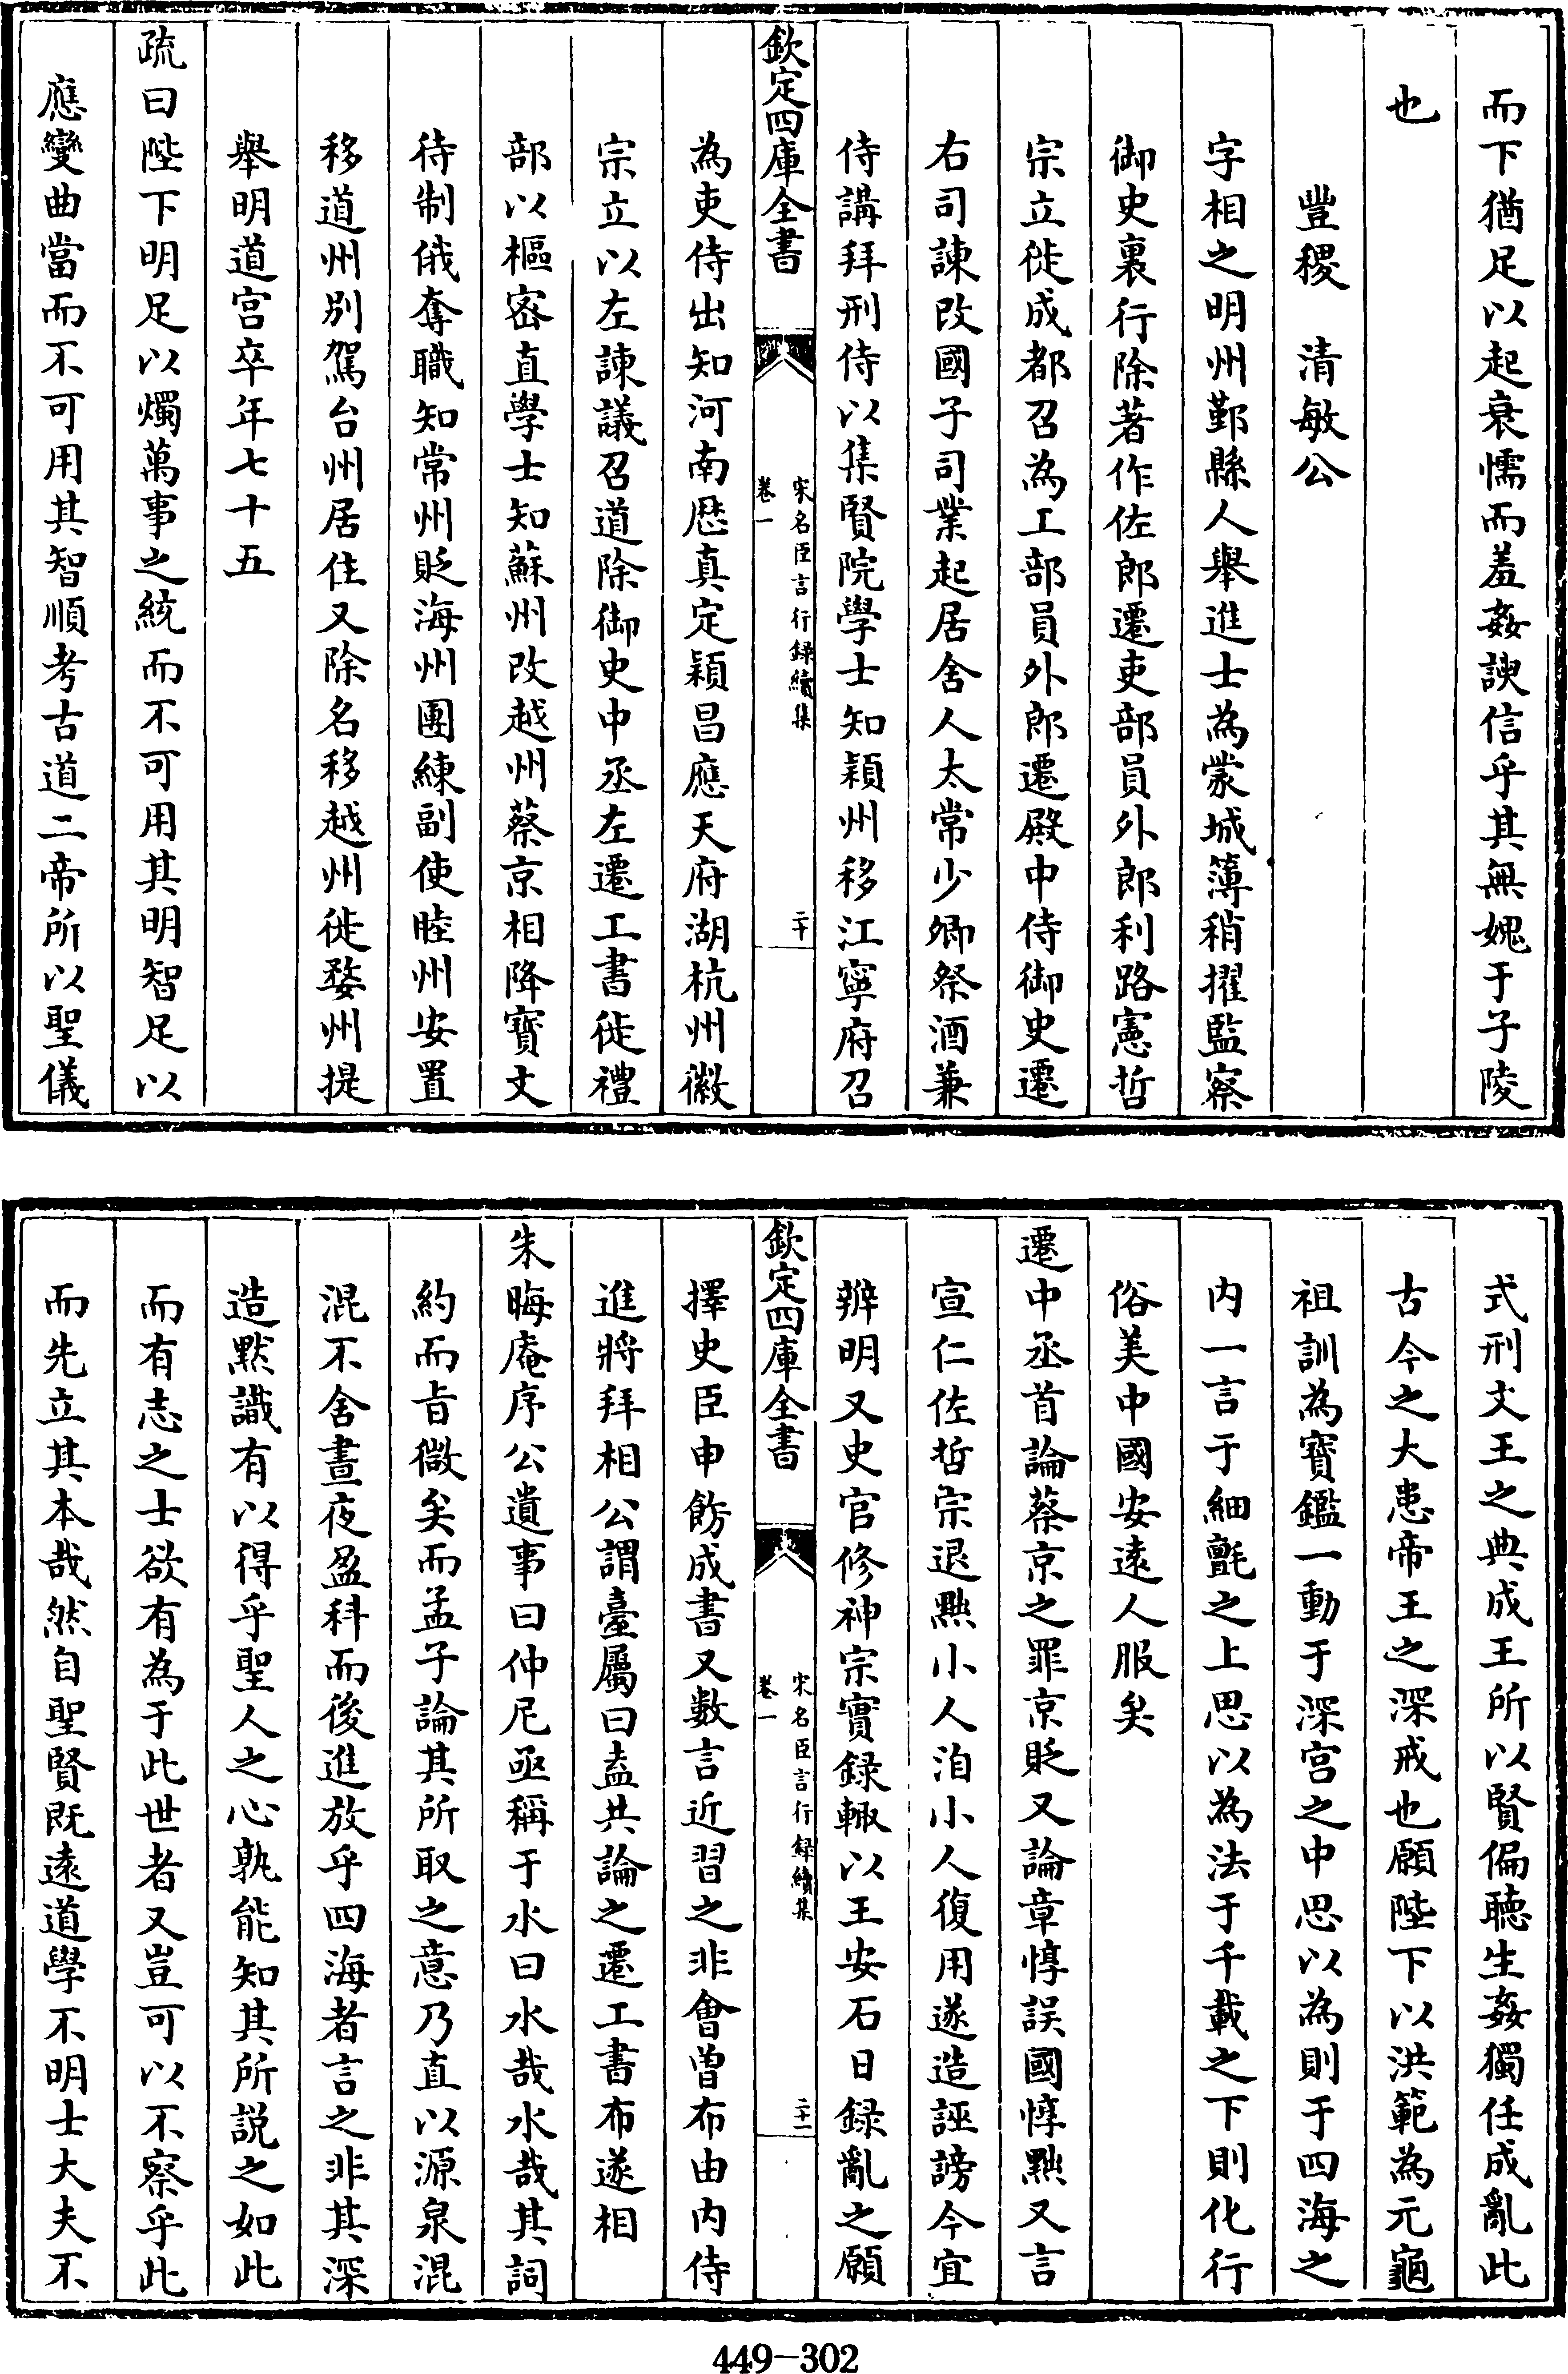 而下猶足以起衰懦而羞姦諛信乎其無媿于子陵
也
豐稷　清敏公
字相之明州鄞縣人舉進士為蒙城簿稍擢監察
御史裏行除著作佐郎遷吏部員外郎利路憲哲
宗立徙成都召為工部員外郎遷殿中侍御史遷
右司諫改國子司業起居舍人太常少卿祭酒兼
侍講拜刑侍以集賢院學士知潁州移江寧府召
欽定四庫全書
宋名臣言行録續集
卷一
二十
為吏侍出知河南厯真定穎昌應天府湖杭州徽
宗立以左諫議召道除御史中丞左遷工書徙禮
部以樞密直學士知蘇州改越州蔡京相降寶文
待制俄奪職知常州貶海州團練副使睦州安置
移道州別駕台州居住又除名移越州徙婺州提
舉明道宫卒年七十五
疏曰陛下明足以燭萬事之統而不可用其明智足以
應變曲當而不可用其智順考古道二帝所以聖儀
式刑文王之典成王所以賢偏聴生姦獨任成亂此
古今之大患帝王之深戒也願陛下以洪範為元龜
祖訓為寶鑑一動于深宫之中思以為則于四海之
内一言于細氈之上思以為法于千載之下則化行
俗美中國安遠人服矣
遷中丞首論蔡京之罪京貶又論章惇誤國惇黜又言
宣仁佐哲宗退黜小人洎小人復用遂造誣謗今宜
辨明又史官修神宗實録輒以王安石日録亂之願
欽定四庫全書
宋名臣言行録續集
卷一
二十一
擇史臣申飭成書又數言近習之非會曾布由内侍
進將拜相公謂臺屬曰盍共論之遷工書布遂相
朱晦庵序公遺事曰仲尼亟稱于水曰水哉水哉其詞
約而㫖微矣而孟子論其所取之意乃直以源泉混
混不舍晝夜盈科而後進放乎四海者言之非其深
造默識有以得乎聖人之心孰能知其所説之如此
而有志之士欲有為于此世者又豈可以不察乎此
而先立其本哉然自聖賢既逺道學不明士大夫不
449-302